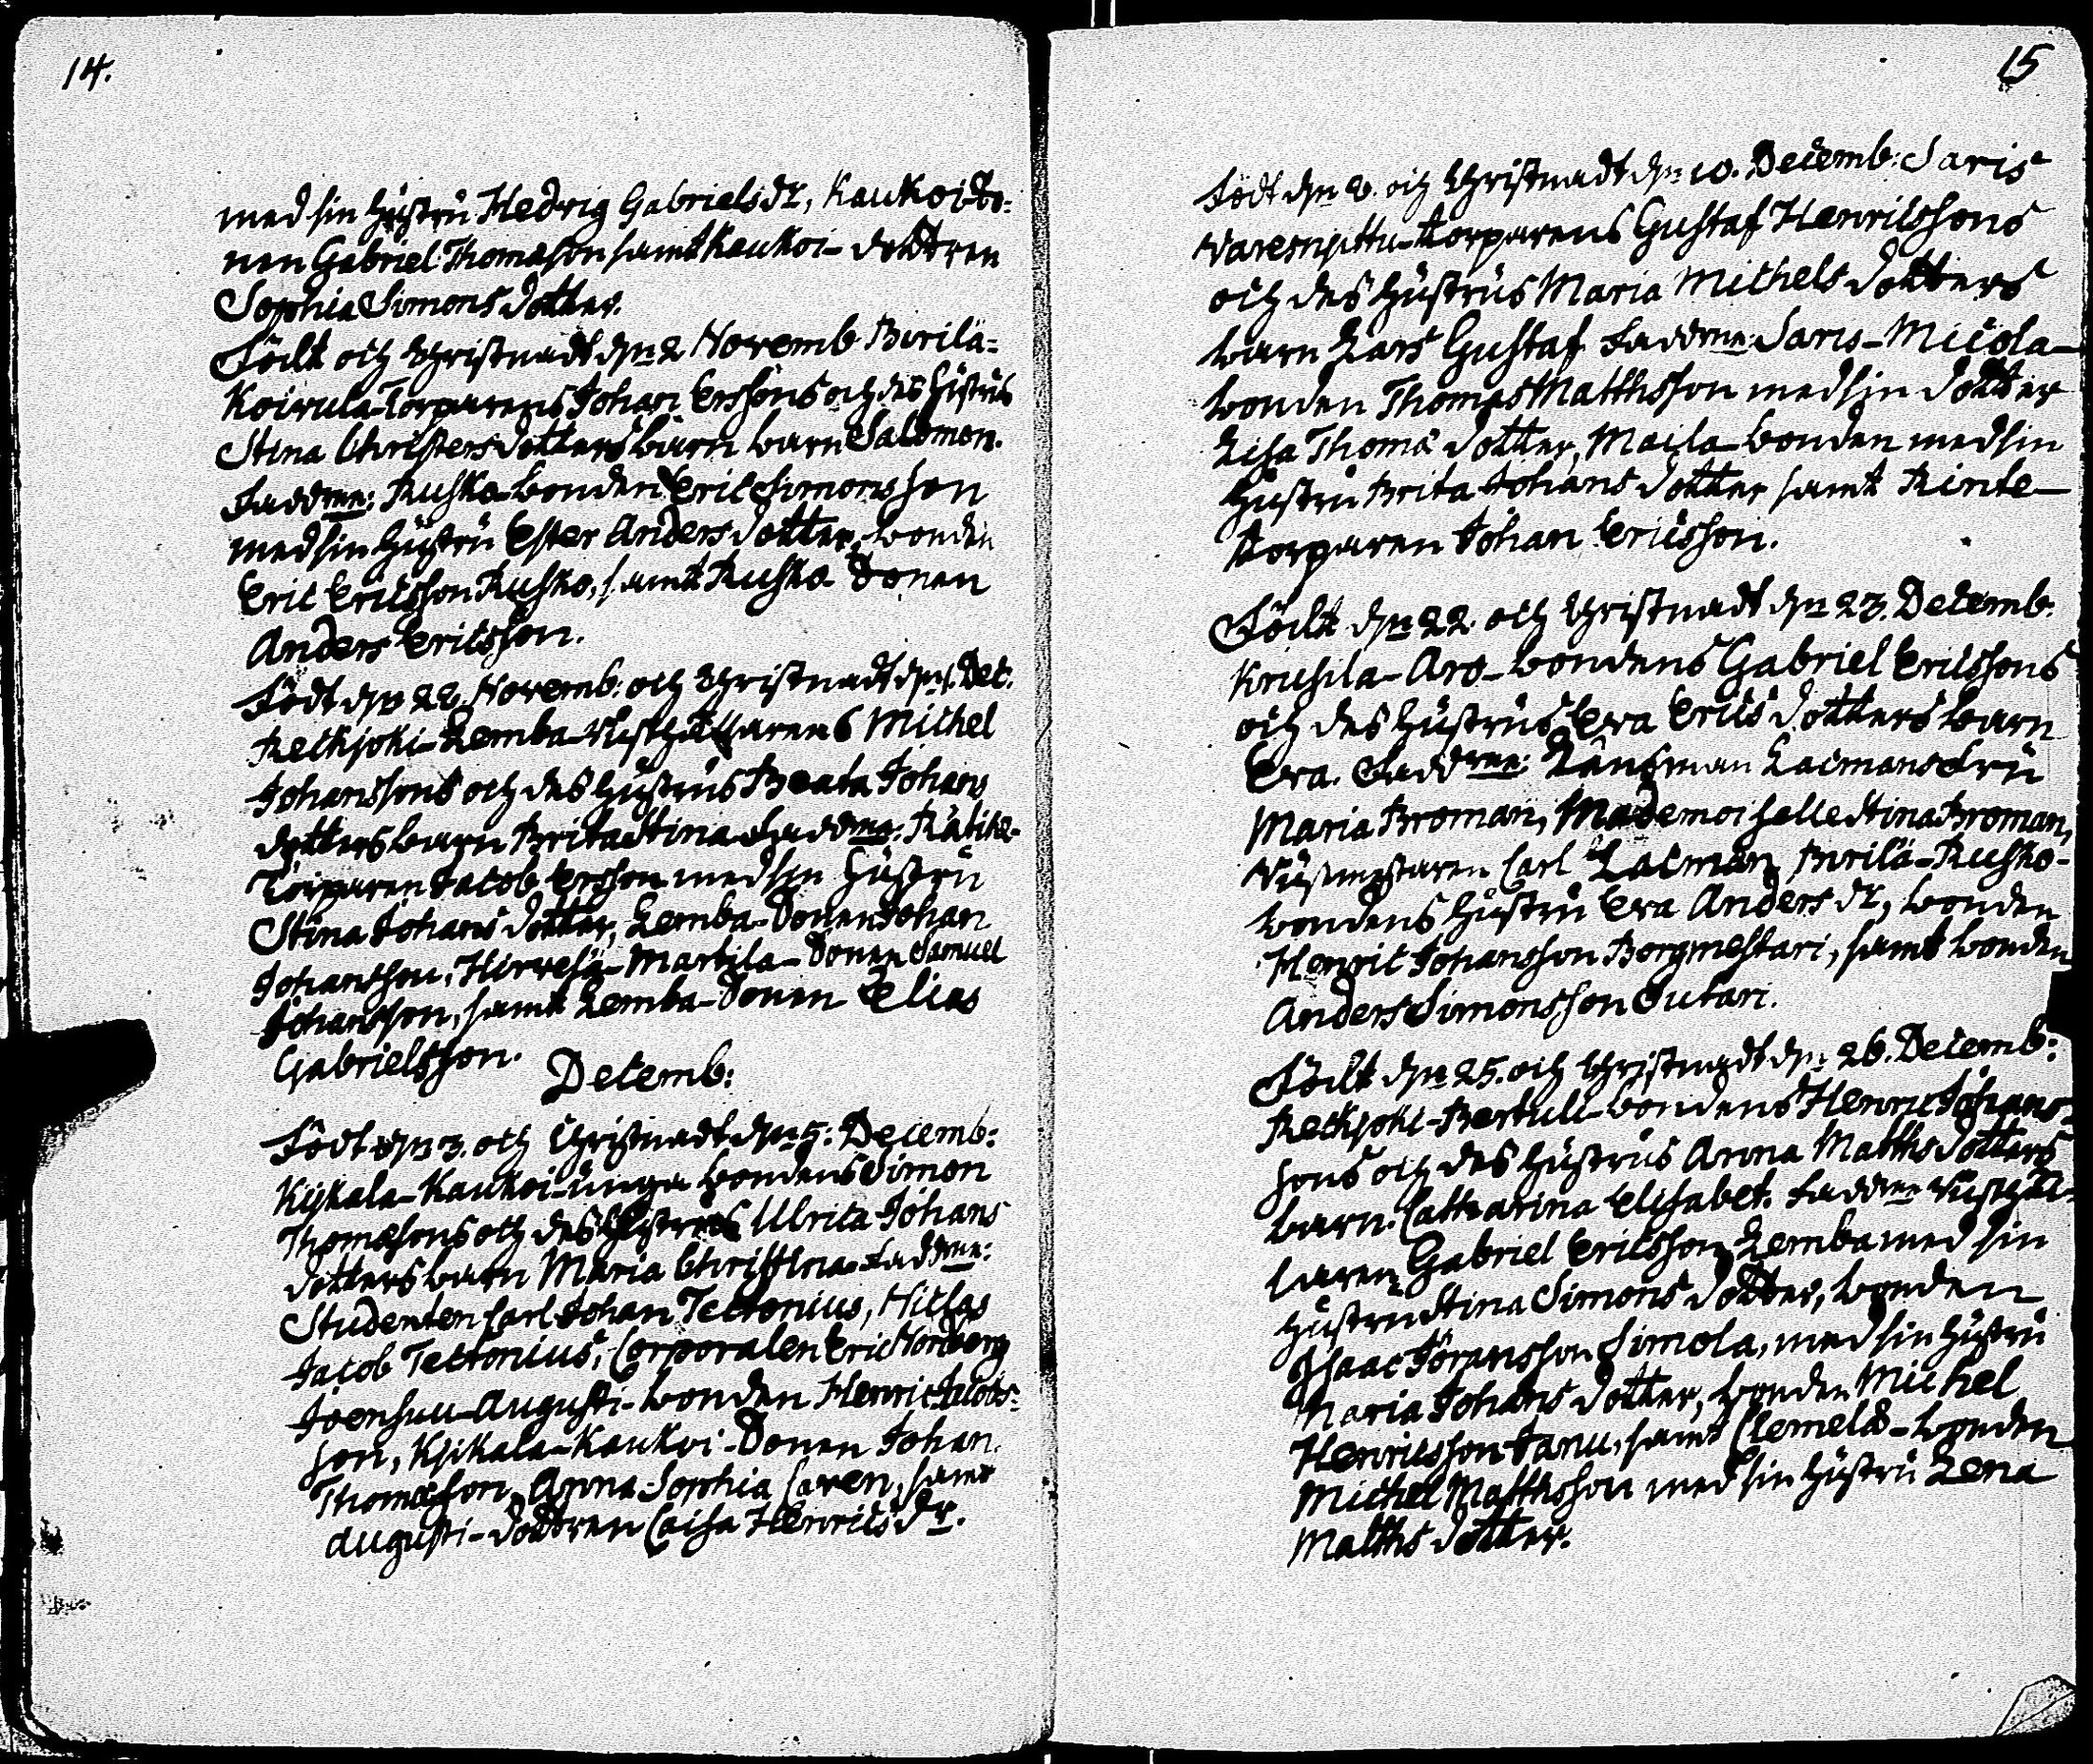 14.
med sin Hustru Hedvig Gabrielsdr, Kaukoi-So-
nen Gabriel Thomasson samt Kaukoi-dottren
Sophia Simons dotter.
Födt och Christnadt dn 2 Novemb Pirilä-
Koivula-Torparens Johan Erssons och des Hustrus
Stina Christers dotters barn barn Salomon.
Faddrne: Rusko-bonden Eric Simonsson
med sin Hustru Ester Anders dotter, bonden
Eric Ericsson Rusko, samt Rusko Sonen
Anders Ericsson.
Födt dn 22. Novemb: och Christnadt dn 1. Dec.
Reckjoki-Lemba-Rusthållarens Michel
Johanssons och des Hustrus Beata Johans
dotters barn Brita Stina Faddrne: Rätike-
Torparen Jacob Ersson med sin Hustru
Stina Johans dotter, Lemba-Sonen Johan
Johansson, Hirvesä-Martila-Sonen Samuel
Johansson, samt Lemba-Sonen Elias
Gabrielsson.
Decemb:
Födt dn 3. och Christnadt dn 5: Decemb:
Kijkala-Kaukoi-unga bondens Simon
Thomassons och des Hustrus Ulrica Johans
dotters barn Maria Christina. Faddrne:
Studenten Carl Johan Tectonius,
Jacob Tectonius, Corporalen Eric Nordberg
Joensuu-Augusti-bonden Henric Jacobs-
son, Kijkala-Kaukoi-Sonen Johan
Thomasson, Anna Sophia Caren, samt
Augusti-dottren Caisa Henrics dr.
15
Födt dn 8. och Christnadt dn 10. Decemb: Saris
Varesnjttu-torparens Gustaf Henricssons
och des Hustrus Maria Michels dotters
barn Lars Gustaf Faddrne: Saris-Micola-
bonden Thomas Matthsson med sin dotter
Lisa Thomæ dotter, Maila-bonden med sin
Hustru Brita Johans dotter samt Rinte-
torparen Johan Ericsson.
Födt dn 22. och Christnadt dn 23. Decemb:
Kriusila-Aro-bondens Gabriel Ericssons
och des Hustrus Eva Erics dotters barn
Eva. Faddrne: Länsman Lacmans Fru
Maria Broman, Mademoiselle Stina Broman,
Rustmestaren Carl Lacman, Pirilä-Rusko-
bondens Hustru Eva Anders dr, bonden
Henric Johansson Borgmestari, samt bonden
Anders Simonsson Sutari.
Födt dn 25. och Christnadt dn 26. Decemb:
Reckjoki-Bertuli-bondens Henric Johans-
sons och des Hustrus Anna Matths dotters
barn. Catharina Elisabet. Faddrne Rusthål-
laren Gabriel Ericsson Lemba med sin
Hustru Stina Simons dotter, bonden
Isaac Göransson Simola, med sin Hustru
Maria Johans dotter, bonden Michel
Henricsson Janu, samt Clemelä-bonden
Michel Matthsson med sin Hustru Lena
Matths dotter.